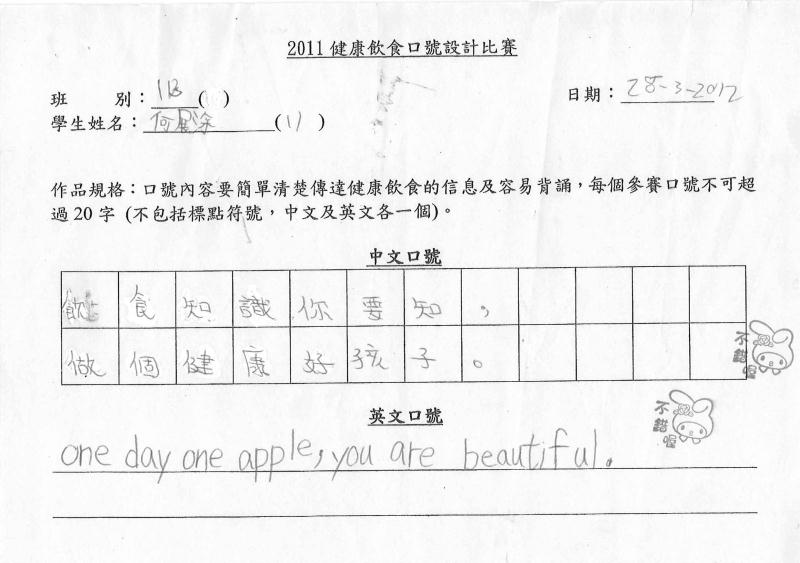 2011 健康飲食口號設計比賽
班 別：1B( )
日期：28-3-2012
學生姓名：何展涂(11)
作品規格：口號內容要簡單清楚傳達健康飲食的信息及容易背誦，每個參賽口號不可超
過 20 字 (不包括標點符號，中文及英文各一個)。
中文口號
飲食知識你要知，
做個健康好孩子。
不錯喔
英文口號
不錯喔
one day one apple, you are beautiful.